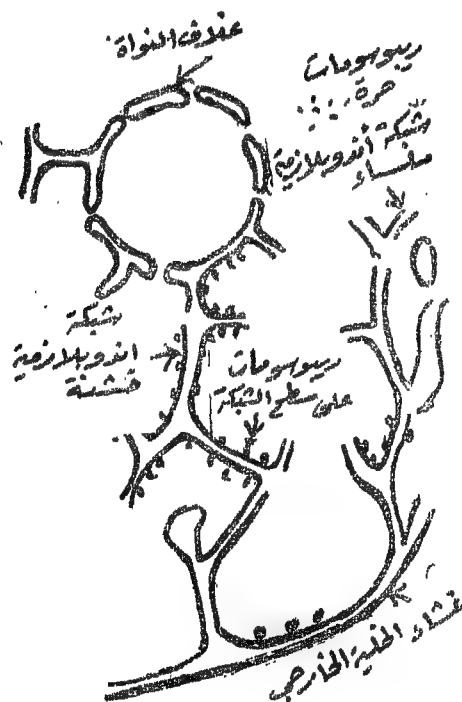 غلاف النواة
ريبوسومات
حرة
شبكة أندوبلازمية
ملساء
شبكة
اندوبلازمية
خشنة
ريبوسومات
على سطح الشبكة
غشاء الخلية الخارجي